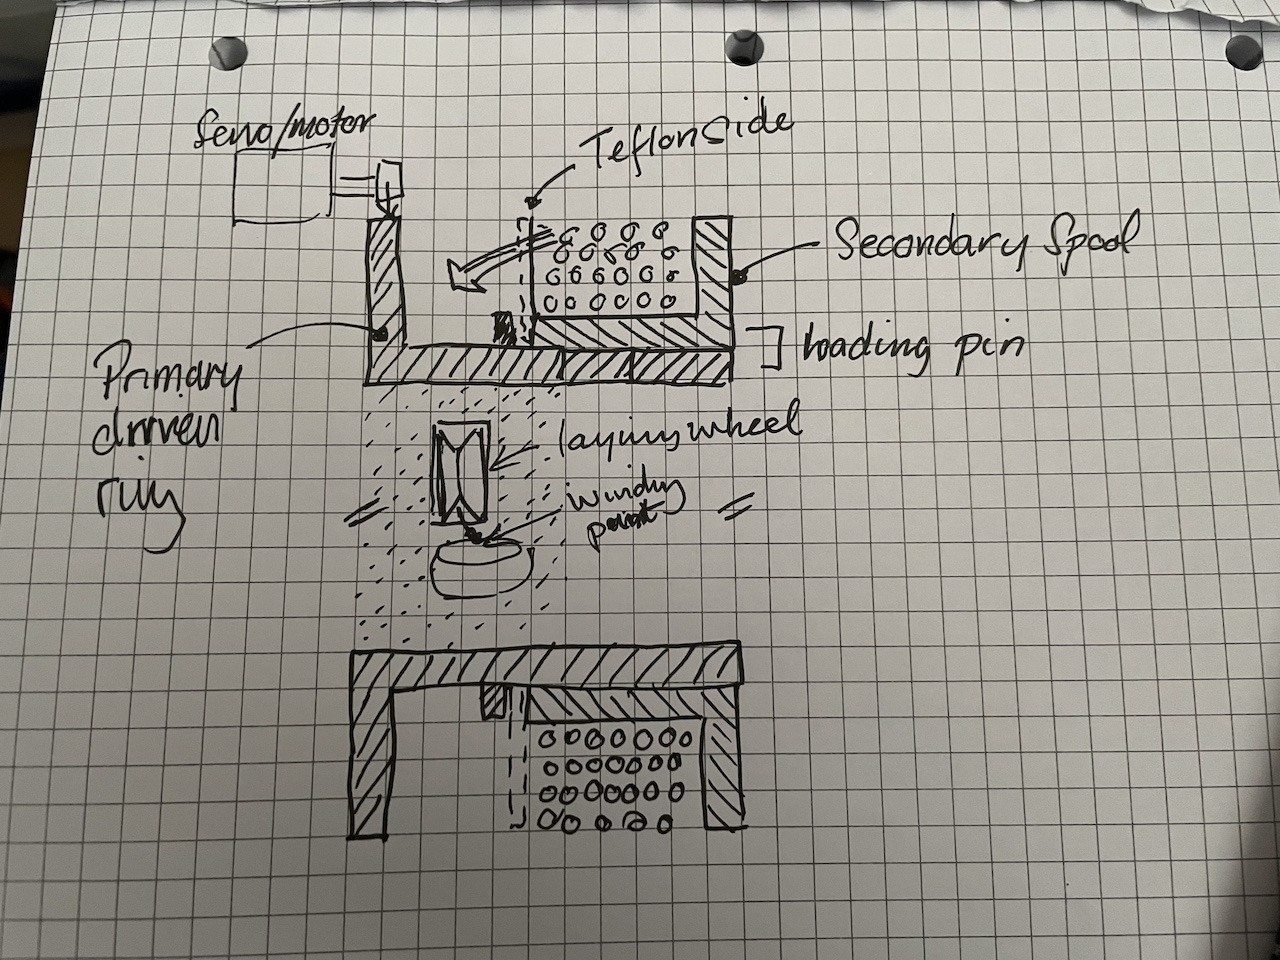 Servo/motor
Teflon side
Secondary Spool
loading pin
Primary
driven
ring
laying wheel
winding
point